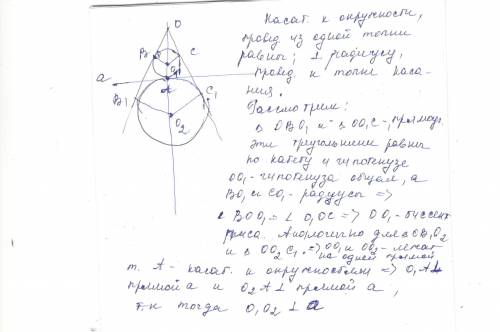 O
B
C
O₁
a
A
B₁
C₁
O₂
Касат. к окружности,
провед из одной точки
равны; ⊥ радиусу,
провед. к точке каса-
ния.
Рассмотрим:
Δ OBO₁ и Δ OO₁C -, прямоуг.
эти треугольники равны
по катету и гипотенузе
OO₁ - гипотенуза общая, а
BO₁ и CO₁ - радиусы =>
∠ BOO₁ = ∠ O₁OC => OO₁ - биссект
риса. Аналогично для Δ OB₁O₂
и Δ OO₂C₁. => OO₁ и OO₂ - лежат
на одной прямой
т. A - касат. к окружностям => O₁A ⊥
прямой a и O₂A ⊥ прямой a,
т.к тогда O₁O₂ ⊥ a